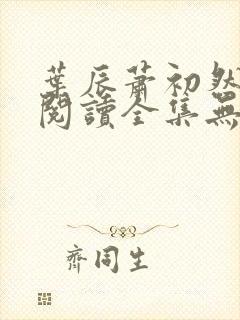 葉辰蕭初然
閱讀全集無
齊同生